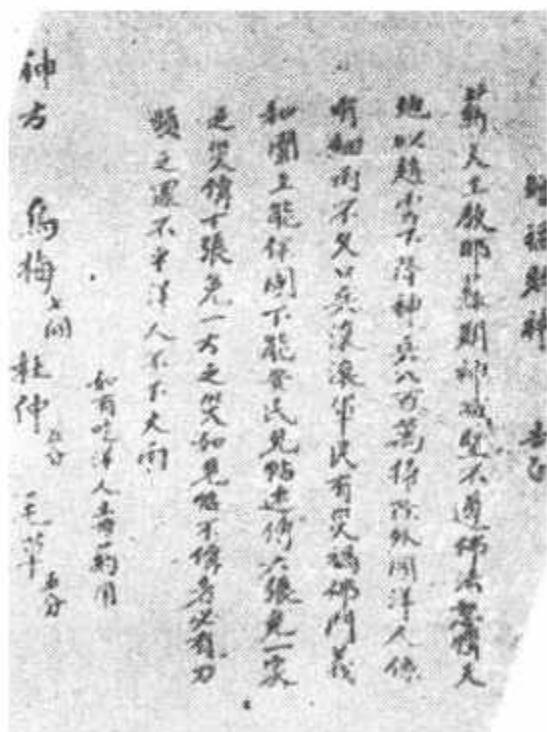 增福財神
天主教耶穌期神滅聖不遵佛法怒惱天
地收起雲雨下降神兵八百萬掃除外國洋人
有細雨不久口兵滾滾軍民有災禍佛門義
和團上能保國下能安民見帖速傳六張免一家
之災傳十張免一方之災如見帖不傳者必有刀
頭之罪不平洋人不下大雨
如有吃洋人毒葯用
神方 烏梅七個 杜仲五分 毛草五分